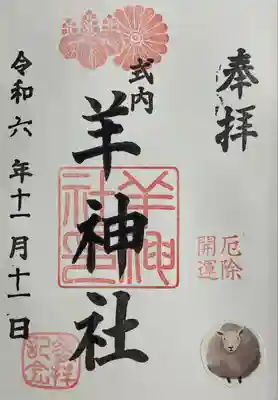 奉拝
厄除
開運
式内
羊神社
羊神
社印
令和六年十一月十一日
参拝
記念